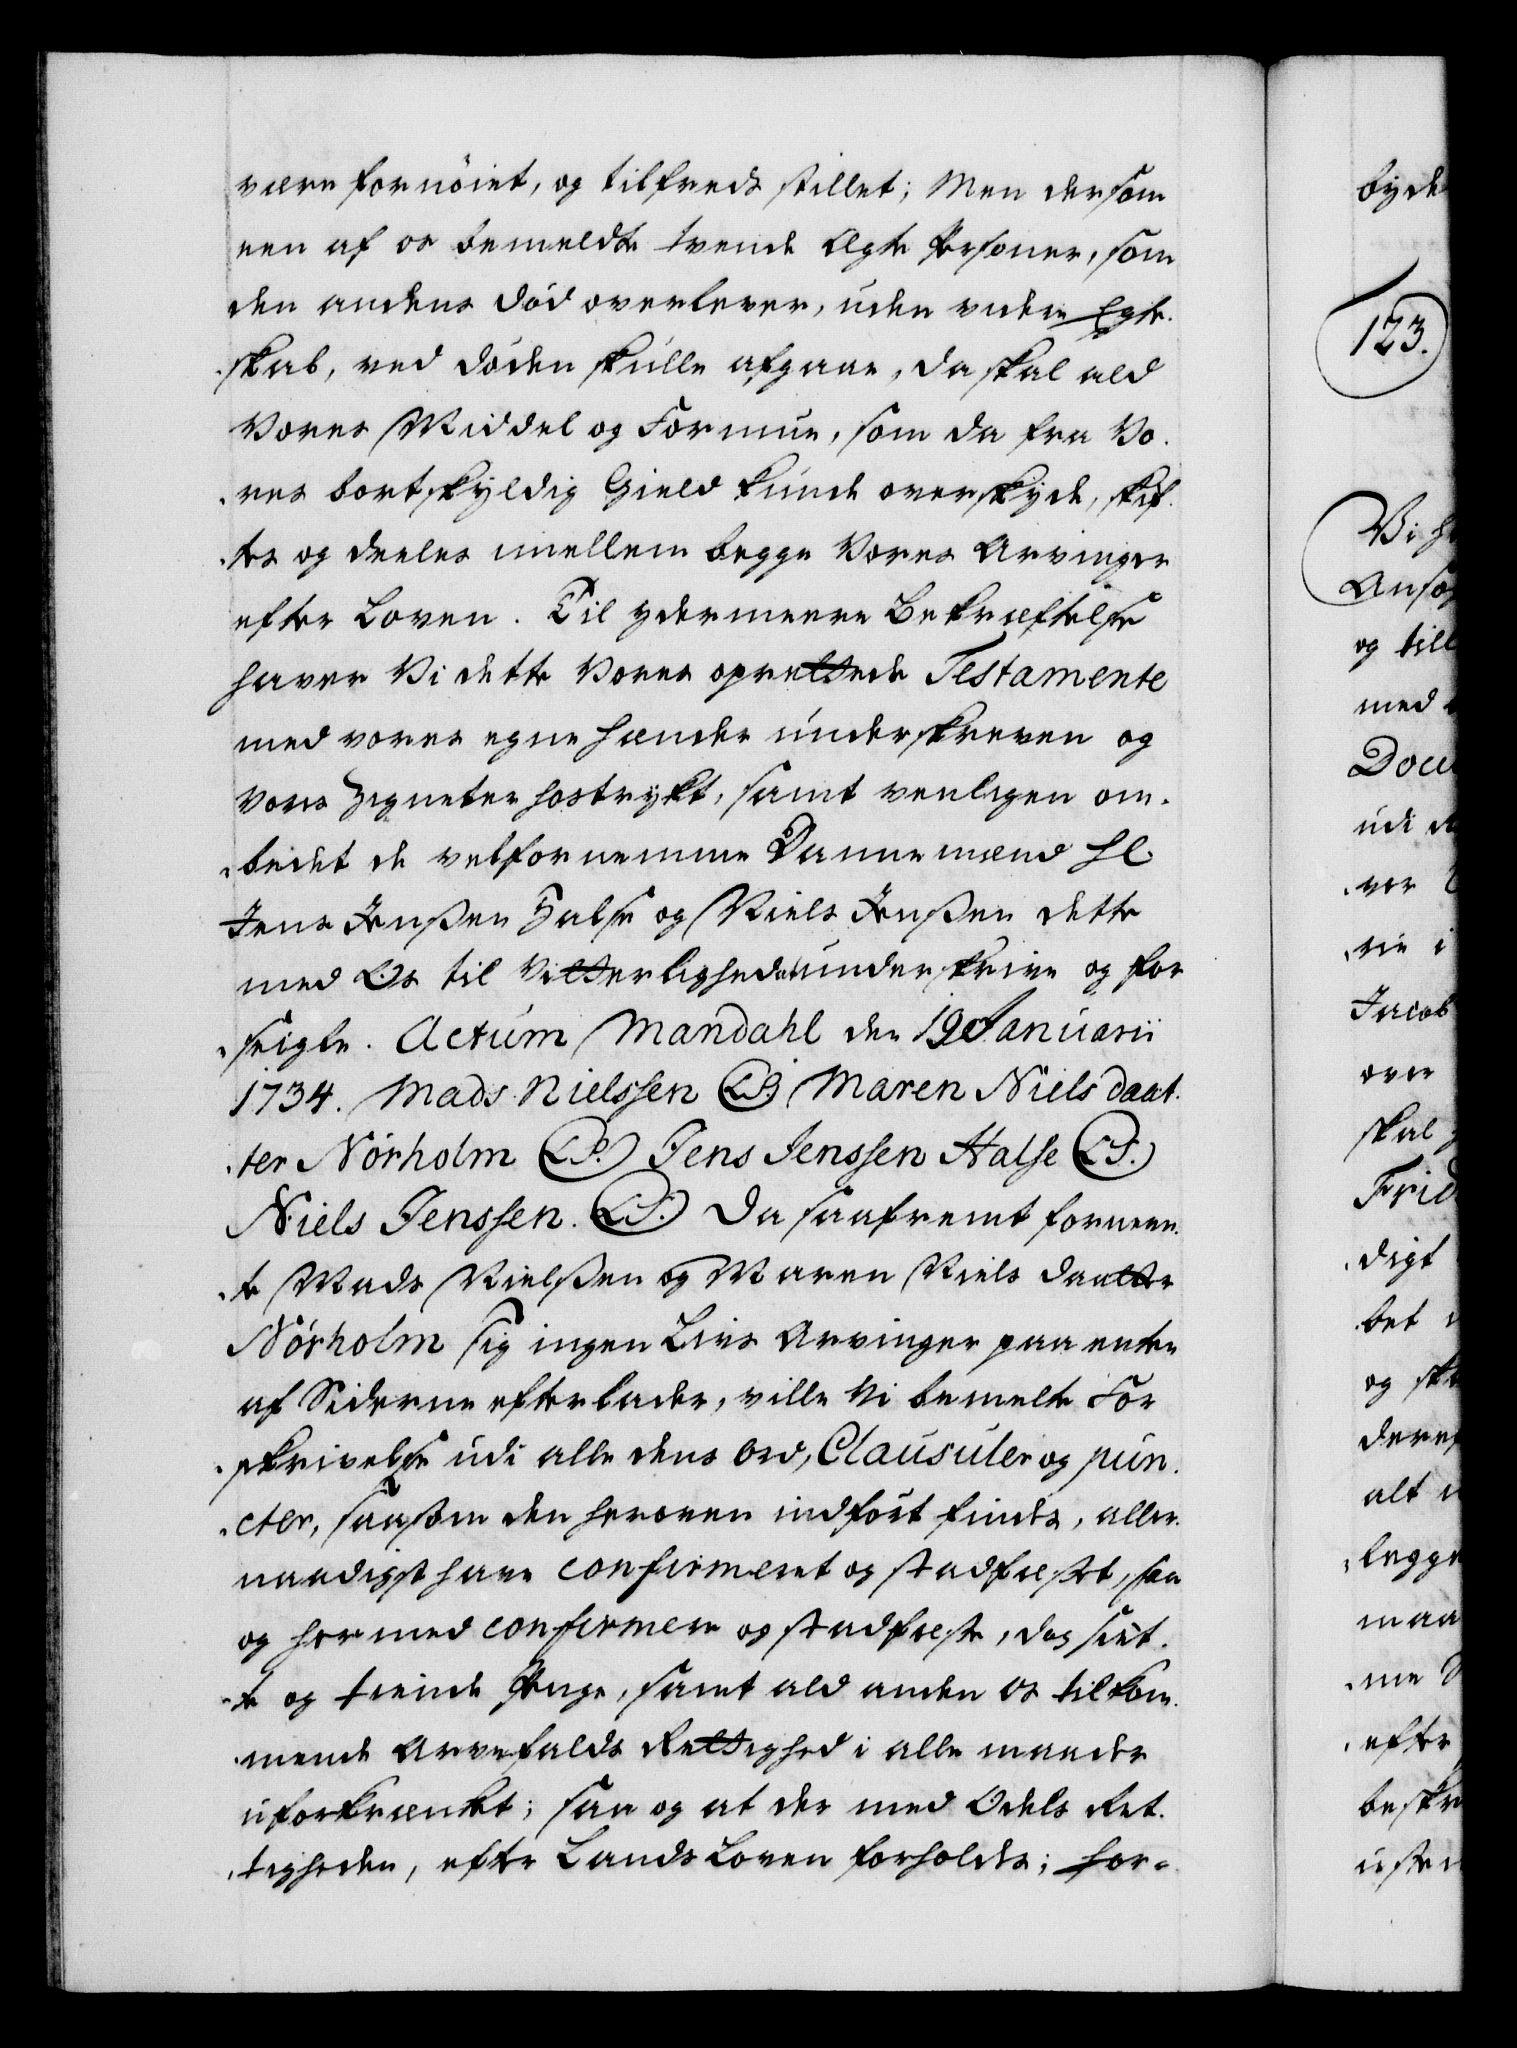 være fornöiet, og tilfreds stillet; Men dersom
een af os bemeldte tvende Ægte Persohner, som
den andens död overlever, uden videre Egte-
skab, ved döden skulle afgaae, da skal ald
Vores Middel og Formue, som da fra Vo-
res bortskyldig Gield kunde overskyde, skif-
tes og deeles imellem begge Vores Arvinger
efter Loven. Til ydermeere Bekræftelse
haver Vi dette Vores oprettede Testamente
med vores egne Hænder underskreven og
vores Zigneter hostrykt, samt venligen om-
bedet de velfornemme Dannemænd Hr
Jens Jenssen Halse og Niels Jenssen dette
med Os til Vitterlighed at underskrive og for
seigle. Actum Mandahl den 19 Januarii
1734. Mads Nielssen (L.S.) Maren Niels daat-
ter Nörholm (L.S.) Jens Jenssen Halse (L.S.)
Niels Jenssen. (L.S.) Da saafremt fornevn-
te Mads Nielssen og Maren Niels daatter
Nörholm sig ingen Livs Arvinger paa enten
af Siderne efterlader, ville Vi bemelte For
skrivelse udi alle dens Ord, Clausuler og pun-
cter, saasom den heroven indfört findes, aller-
naadigst have confirmeret og stadfæstet, saa
og hermed confirmere og stadfæste, dog siet-
te og tiende Penge, samt ald anden os tilkom-
mende Arvefalds Rettighed i alle maader
uforkrænket; saa og at der med Odels Ret-
tigheden, efter Lands Loven forholdes; for-
byde
123.
Vi
og till
med
udi
ver
rie i
Jacob
over
skal
Frid
digt
bet
og
alt
legge
maa
me
efter